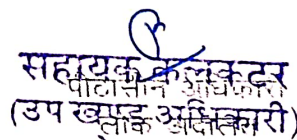 सहायक कलक्टर
पीठासीन अधिकारी
(उप खण्ड अधिकारी)
लोक अदालत